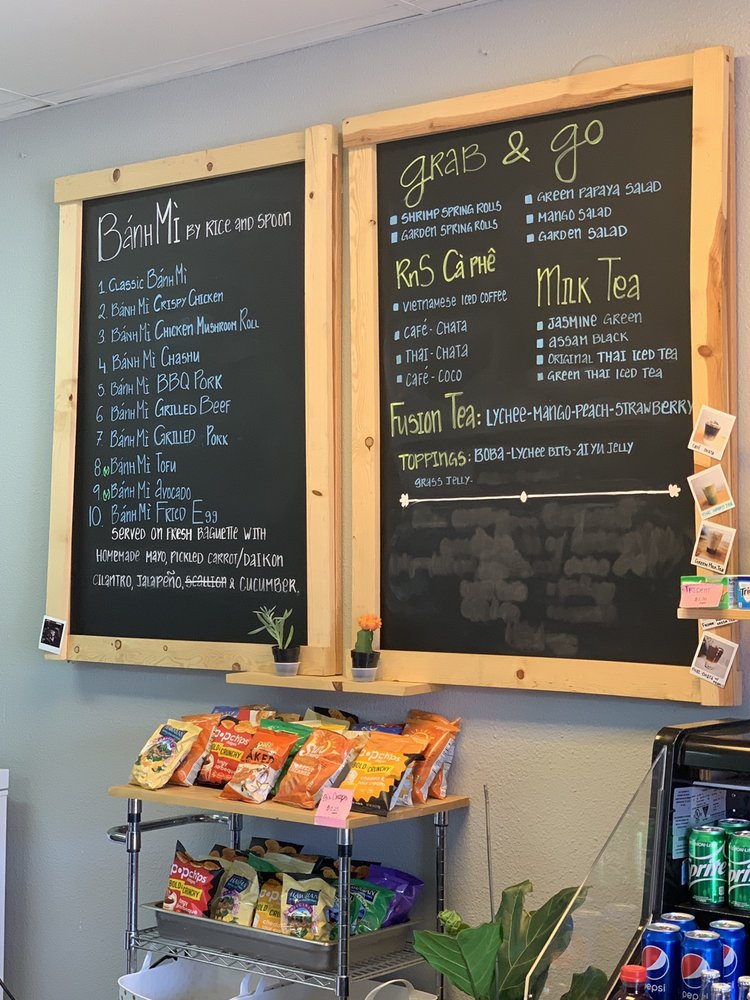 BánhMì BY RICE AND SPOON
1. CLASSIC BÁNH MÌ
2. BÁNH MÌ CRISPY CHICKEN
3 BÁNH MÌ CHICKEN MUSHROOM ROLL
4 BÁNH MÌ CHASHU
5. BÁNH MÌ BBQ PORK
6 BÁNH MÌ GRILLED BEEF
7 BÁNH MÌ GRILLED PORK
8 BÁNH MÌ TOFU
9 BÁNH MÌ AVOCADO
10. BÁNH MÌ FRIED Egg
SERVED ON FRESH BAGUETTE WITH
HOMEMADE MAYO, PICKLED CARROT/DAIKON
CILANTRO, JALAPEÑO, SCALLION & CUCUMBER.
GRAB & GO
SHRIMP SPRING ROLLS
GARDEN SPRING ROLLS
GREEN PAPAYA SALAD
MANGO SALAD
GARDEN SALAD
RnS CÀ PHÊ
VIETNAMESE ICED COFFEE
CAFÉ - CHATA
THAI - CHATA
CAFÉ - COCO
MILK TEA
JASMINE GREEN
ASSAM BLACK
ORIGINAL THAI ICED TEA
GREEN THAI ICED TEA
FUSION TEA: LYCHEE-MANGO-PEACH-STRAWBERRY
TOPPINGS: BOBA-LYCHEE BITS-AI YU JELLY
GRASS JELLY.
TRIDENT
popchips
BOLD & CRUNCHY
BAKED
Sun
BOLD & CRUNCHY
popchips
BOLD & CRUNCHY
HAWAIIAN
Sprite
pepsi
pepsi